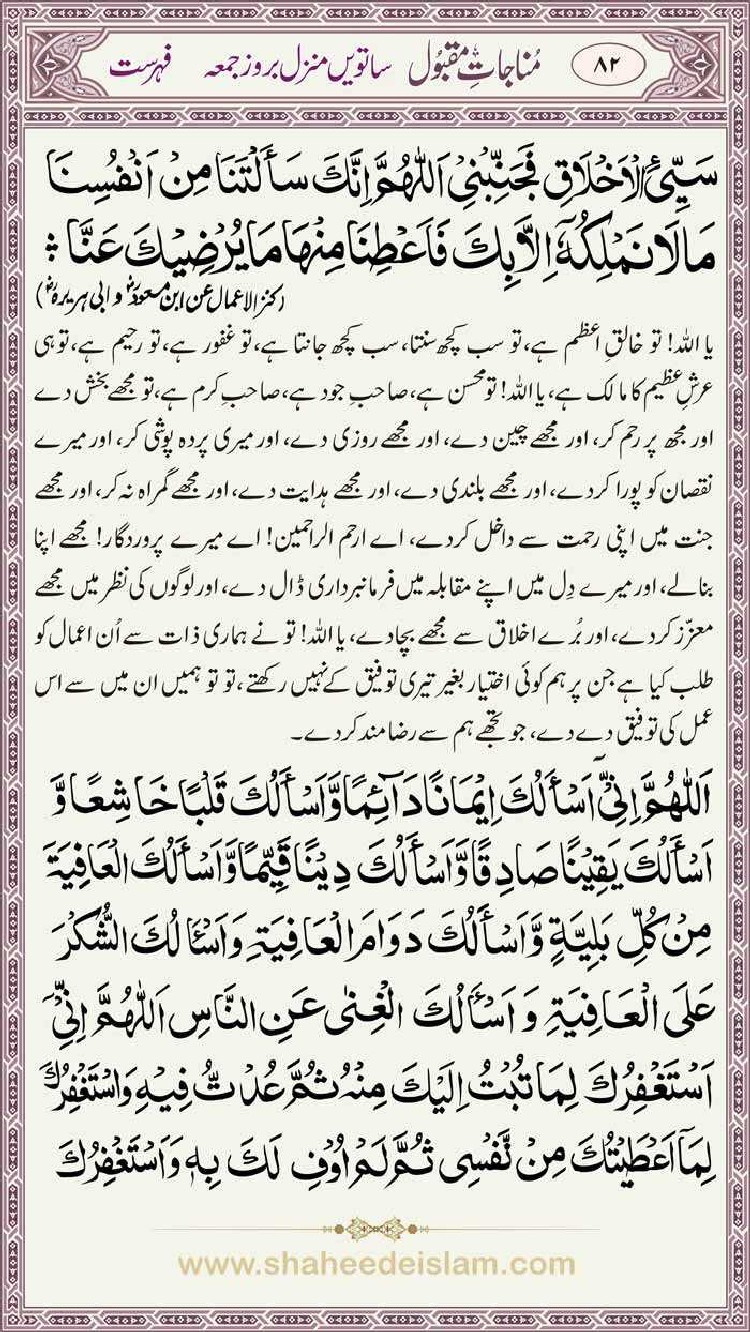 ۸۲ مُناجاتِ مقبُول ساتویں منزل بروز جمعہ فہرست
سَيِّئِ الْاَخْلَاقِ فَجَنِّبْنِيْ اَللّٰهُمَّ اِنَّكَ سَاَلْتَنَا مِنْ اَنْفُسِنَا
مَالَا نَمْلِكُهٗٓ اِلَّا بِكَ فَاَعْطِنَا مِنْهَا مَا يُرْضِيْكَ عَنَّا ؞
(کنز الاعمال عن ابن مسعودؓ و ابی ہریرہؓ)
یا اللہ! تو خالقِ اعظم ہے، تو سب کچھ سنتا، سب کچھ جانتا ہے، تو غفور ہے، تو رحیم ہے، تو ہی
عرشِ عظیم کا مالک ہے، یا اللہ! تو محسن ہے، صاحبِ جود ہے، صاحبِ کرم ہے، تو مجھے بخش دے
اور مجھ پر رحم کر، اور مجھے چین دے، اور مجھے روزی دے، اور میری پردہ پوشی کر، اور میرے
نقصان کو پورا کردے، اور مجھے بلندی دے، اور مجھے ہدایت دے، اور مجھے گمراہ نہ کر، اور مجھے
جنت میں اپنی رحمت سے داخل کردے، اے ارحم الراحمین! اے میرے پروردگار! مجھے اپنا
بنالے، اور میرے دِل میں اپنے مقابلہ میں فرمانبرداری ڈال دے، اور لوگوں کی نظر میں مجھے
معزّز کردے، اور بُرے اخلاق سے مجھے بچادے، یا اللہ! تو نے ہماری ذات سے اُن اعمال کو
طلب کیا ہے جن پر ہم کوئی اختیار بغیر تیری توفیق کے نہیں رکھتے، تو تو ہمیں ان میں سے اس
عمل کی توفیق دے دے، جو تجھے ہم سے رضامند کردے۔
اَللّٰهُمَّ اِنِّيْٓ اَسْاَلُكَ اِيْمَانًا دَآئِمًا وَّاَسْاَلُكَ قَلْبًا خَاشِعًا وَّ
اَسْاَلُكَ يَقِيْنًا صَادِقًا وَّاَسْاَلُكَ دِيْنًا قَيِّمًا وَّاَسْاَلُكَ الْعَافِيَةَ
مِنْ كُلِّ بَلِيَّةٍ وَّاَسْاَلُكَ دَوَامَ الْعَافِيَةِ وَاَسْاَلُكَ الشُّكْرَ
عَلَى الْعَافِيَةِ وَاَسْاَلُكَ الْغِنٰى عَنِ النَّاسِ اَللّٰهُمَّ اِنِّيْٓ
اَسْتَغْفِرُكَ لِمَا تُبْتُ اِلَيْكَ مِنْهُ ثُمَّ عُدْتُّ فِيْهِ وَاَسْتَغْفِرُكَ
لِمَآ اَعْطَيْتُكَ مِنْ نَّفْسِيْ ثُمَّ لَمْ اُوْفِ لَكَ بِهٖ وَاَسْتَغْفِرُكَ
www.shaheedeislam.com